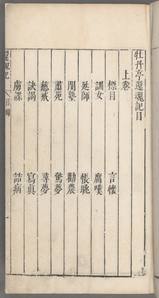 牡丹亭還魂記目
上卷
標目 言懷
訓女 腐嘆
延師 悵眺
閨塾 勸農
肅苑 驚夢
慈戒 尋夢
訣謁 寫真
虜諜 詰病